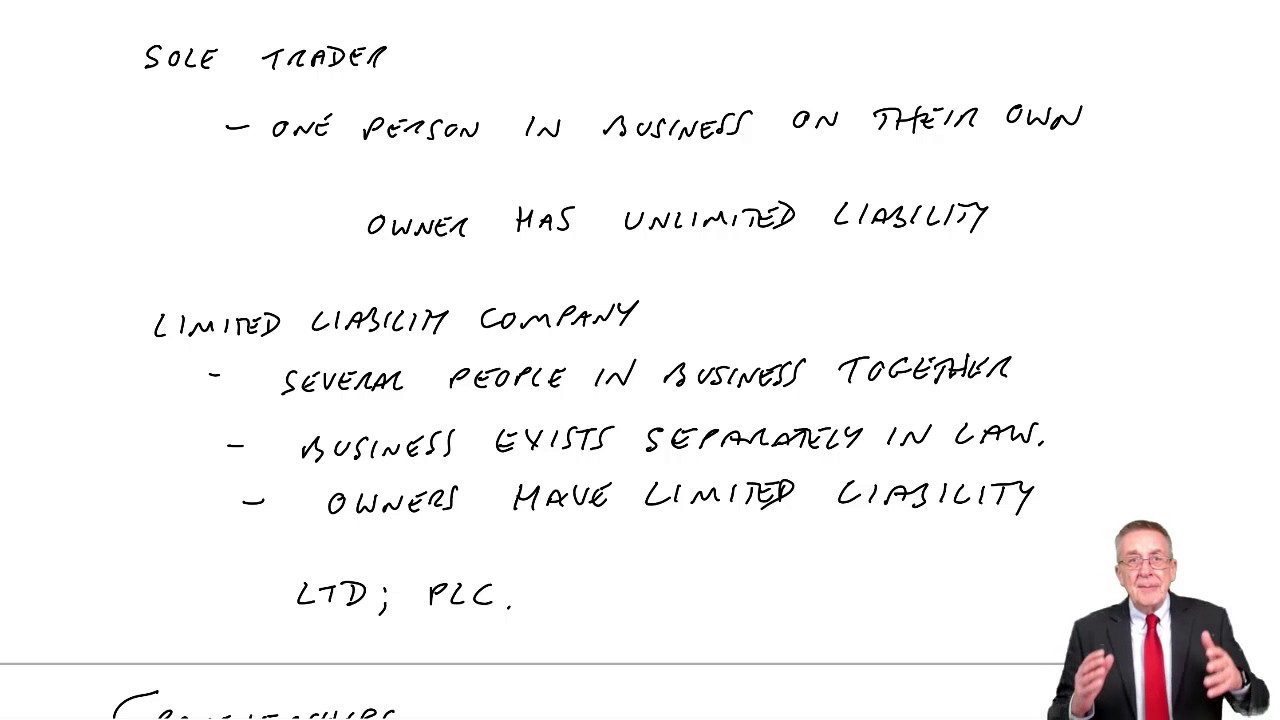 SOLE TRADER
- ONE PERSON IN BUSINESS ON THEIR OWN
OWNER HAS UNLIMITED LIABILITY
LIMITED LIABILITY COMPANY
- SEVERAL PEOPLE IN BUSINESS TOGETHER
- BUSINESS EXISTS SEPARATELY IN LAW.
- OWNERS HAVE LIMITED LIABILITY
LTD; PLC.